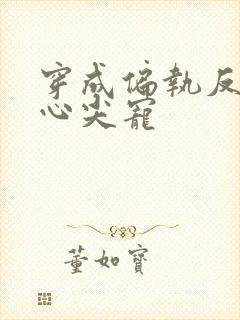 穿成偏執反
心尖寵
董如寶